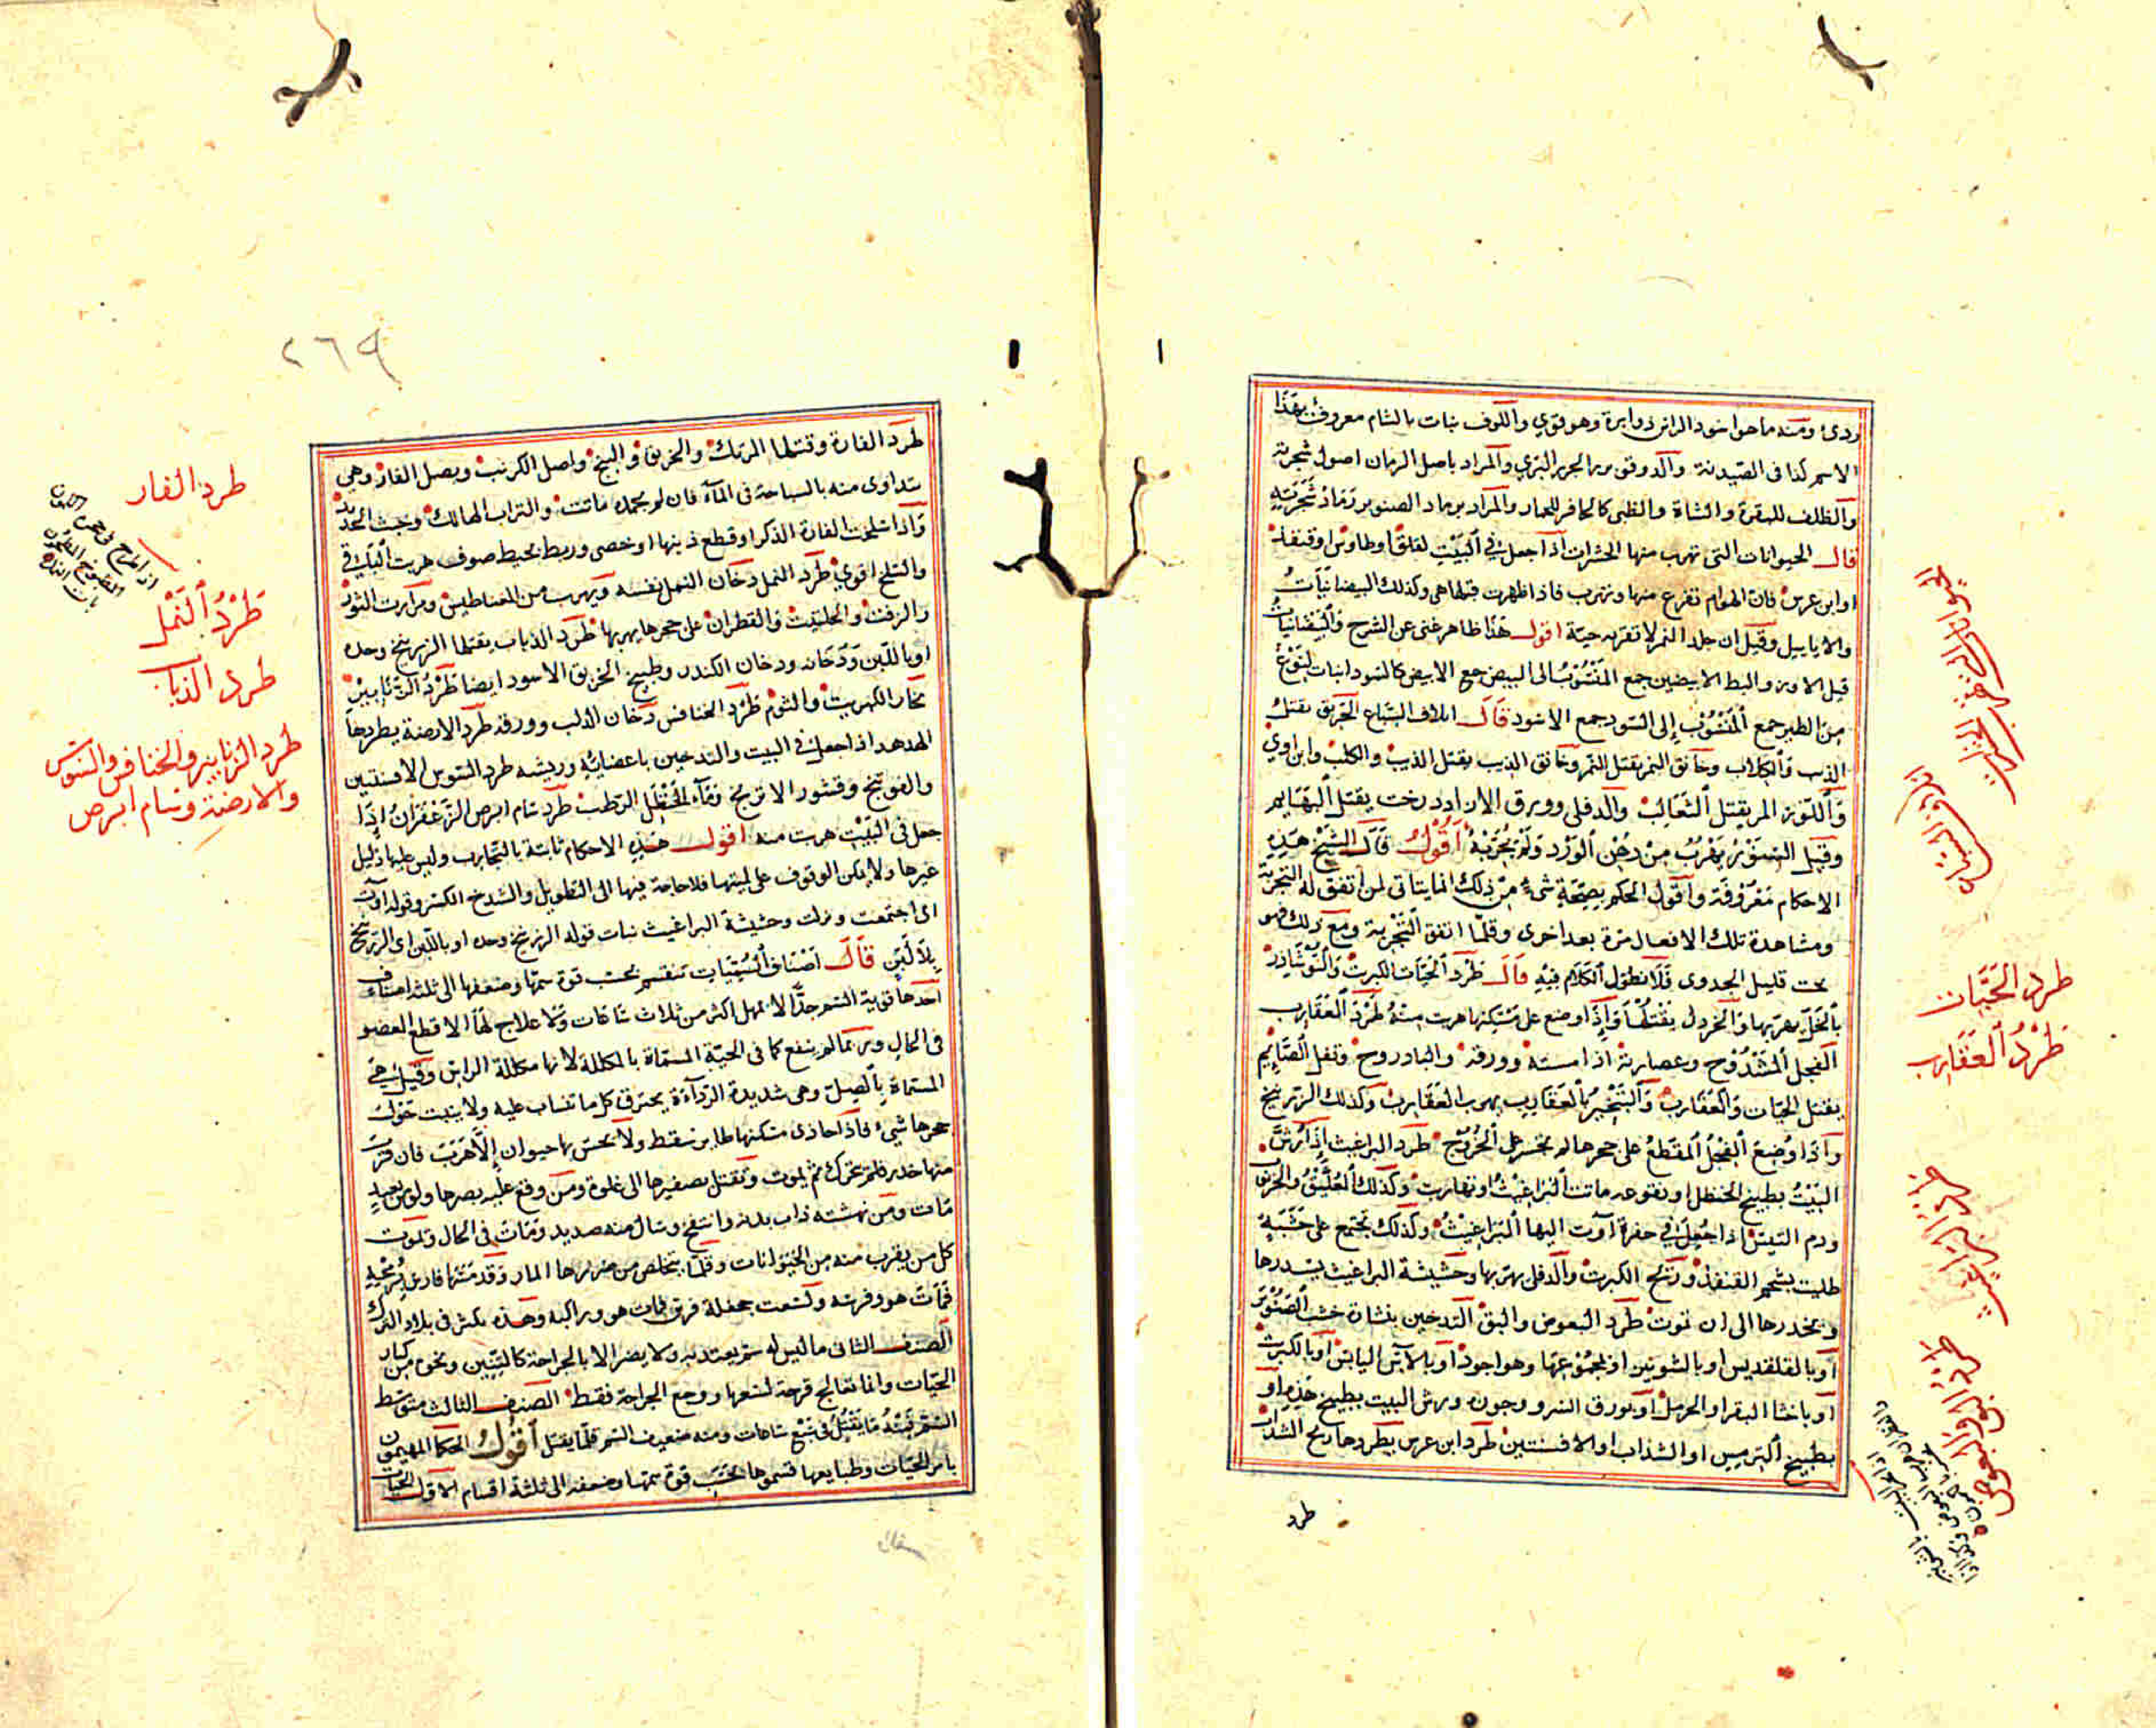 ردئ ومنه ما هو اسود الراس ذو ابرة وهو قوي واللوف نبات بالشام معروف بهذا
الاسم كذا فى الصيدنة والدوقو بزر الجزر البري والمراد باصل الرمان اصول شجرته
والظلف للبقرة والشاة والظبى كالحافر للحمار والمراد برماد الصنوبر رماد شجرته
قال الحيوانات التى تهرب منها الحشرات اذا جعل في البيت لقلق او طاوس او قنفذ
او ابن عرس فان الهوام تفزع منها وتهرب فاذا ظهرت قتلها هى وكذلك البيضانيات
والاياييل وقيل ان جلد النمر لا تقربه حية اقول هذا ظاهر غنى عن الشرح والبيضانيات
قيل الاوز والبط الابيضين جمع المنسوب الى البيض جمع الابيض كالسودانيات لنوع
من الطير جمع المنسوب إلى السود جمع الاسود قال اتلاف السباع الخربق يقتل
الذيب والكلاب وخانق النمر يقتل النمر وخانق الذيب يقتل الذيب والكلب وابن اوى
واللوز المر يقتل الثعالب والدفلى وورق الازاددرخت يقتل البهايم
وقيل السنور يهرب من دهن الورد ولم نجربه أقول قال الشيخ هذه
الاحكام معروفة واقول الحكم بصحة شىء من ذلك انما يتاتى لمن اتفق له التجربة
ومشاهدة تلك الافعال مرة بعد اخرى وقلما اتفق التجربة ومع ذلك فهو
بحث قليل الجدوى فلا نطول الكلام فيه قال طرد الحيات الكبريت والنوشاذر
بالخل يهربها والخردل يقتلها واذا وضع على مسكنها هربت منه طرد العقارب
الفجل المشدوخ وعصارته اذا مسته وورقه والبادروج وتفل الصايم
يقتل الحيات والعقارب والتبخير بالعقارب يهرب العقارب وكذلك الزرنيخ
واذا وضع الفجل المقطع على جحرها لم تجسر على الخروج طرد البراغيث إذا رش
البيت بطبيخ الحنظل او نقوعه ماتت البراغيث او تهاربت وكذلك العليق والخرنوب
ودم التيس اذا جعل في حفرة آوت اليها البراغيث وكذلك تجتمع على خشبة
طليت بشحم القنفذ وريح الكبريت والدفلى يهربها وحشيشة البراغيث يسدرها
ويخدرها الى ان تموت طرد البعوض والبق التدخين بنشارة خشب الصنوبر
او بالقلقديس او بالشونيز او بمجموعها وهو اجود او بالآس اليابس او بالكبريت
او باخثا البقر او الحرمل او بورق السرو وجوزه ويرش البيت بطبيخ هذه او
بطبيخ الترمس او الشذاب او الافسنتين طرد ابن عرس يطردها ريح الشذاب
طرد
طرد الحيات
طرد العقارب
طرد البراغيث
طرد البق والبعوض
٢٦٩
طرد الفارة وقتلها المرتك والخربق والبنج واصل الكرنب وبصل الفار وهي
تتداوى منه بالسباحة فى المآء فان لم تجده ماتت والتراب الهالك وخبث الحديد
واذا سلخت الفارة الذكر او قطع ذنبها او خصى وربط بخيط صوف هربت البواقى
والسلخ اقوي طرد النمل دخان النمل نفسه ويهرب من المغناطيس ومرارت الثور
والزفت والحلتيت والقطران على جحرها يهربها طرد الذباب يقتلها الزرنيخ وحده
او باللبن ودخانه ودخان الكندر وطبيخ الخربق الاسود ايضا طرد الزنابير
بخار الكبريت والثوم طرد الخنافس دخان الدلب وورقه طرد الارضة يطردها
الهدهد اذا جعل في البيت والتدخين باعضائه وريشه طرد السوس الافسنتين
والفوتنج وقشور الاترج ومآء الحنظل الرطب طرد سام ابرص الزعفران إذا
جعل فى البيت هربت منه اقول هذه الاحكام ثابتة بالتجارب وليس عليها دليل
غيرها ولا يمكن الوقوف على لميتها فلا حاجة فيها الى التطويل والشدخ الكسر وقوله اوت
اى اجتمعت ونزلت وحشيشة البراغيث نبات قوله الزرنيخ وحده او باللبن اى الزرنيخ
بلا لبن قال اصناف الحيات تنقسم بحسب قوة سمها وضعفها الى ثلثة اصناف
احدها قوية السم جدا لا تمهل اكثر من ثلاث ساعات ولا علاج لها الا قطع العضو
فى الحال وربما لم ينفع كما فى الحية المسماة بالمكللة لانها مكللة الراس وقيل هى
المسماة بالصل وهى شديدة الردآءة يحترق كل ما تنساب عليه ولا ينبت حول
جحرها شيء فاذا حاذى مسكنها طاير سقط ولا يحس بها حيوان إلا هرب فان قرب
منها خدر فلم يتحرك ثم يموت وتقتل بصفيرها الى غلوة ومن وقع عليه بصرها ولو من بعيد
مات ومن نهشته ذاب بدنه وانتفخ وسال منه صديد ومات فى الحال وتموت
كل من يقرب منه من الحيوانات وقلما يتخلص من ضررها المار وقد مسها فارس برمحه
فمات هو وفرسه ولسعت جحفلة فرس فمات هو وراكبه وهذه يكثر فى بلاد الترك
الصنف الثانى ما ليس له سم يعتد به ولا يضر الا بالجراحة كالتنين ونحوه من كبار
الحيات وانما تعالج قرحة لسعها ووجع الجراحة فقط الصنف الثالث متوسط
السم فمنه ما يقتل في سبع ساعات ومنه ضعيف السم قلما يقتل أقول الحكما المهتمون
بامر الحيات وطبايعها قسموها بحسب قوة سمها وضعفه الى ثلثة اقسام الاول الحيات
طرد الفار
طرد النمل
طرد الذباب
طرد الزنابير والخنافس والسوس
والارضة وسام ابرص